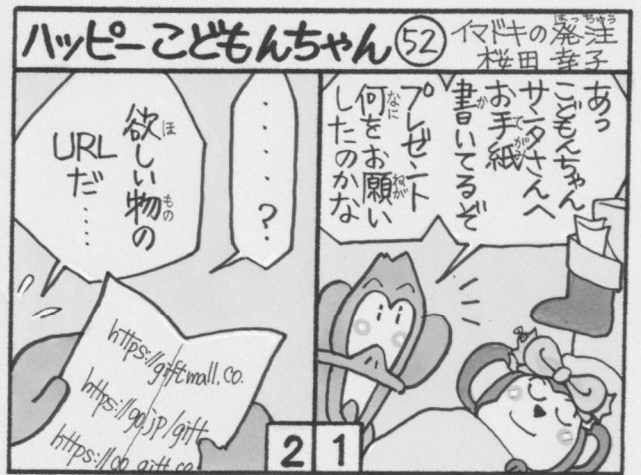 ハッピーこどもんちゃん 52
イマドキの発注
はっちゅう
桜田幸子
あっ
こどもんちゃん
サンタさんへ
お手紙
てがみ
書いてるぞ
か
プレゼント
何をお願い
なに
ねが
したのかな
1
・・・・・?
欲しい物の
ほ
もの
URL
だ……
https://giftmall.co.
https://go.jp/gift
https://co.gift.co
2